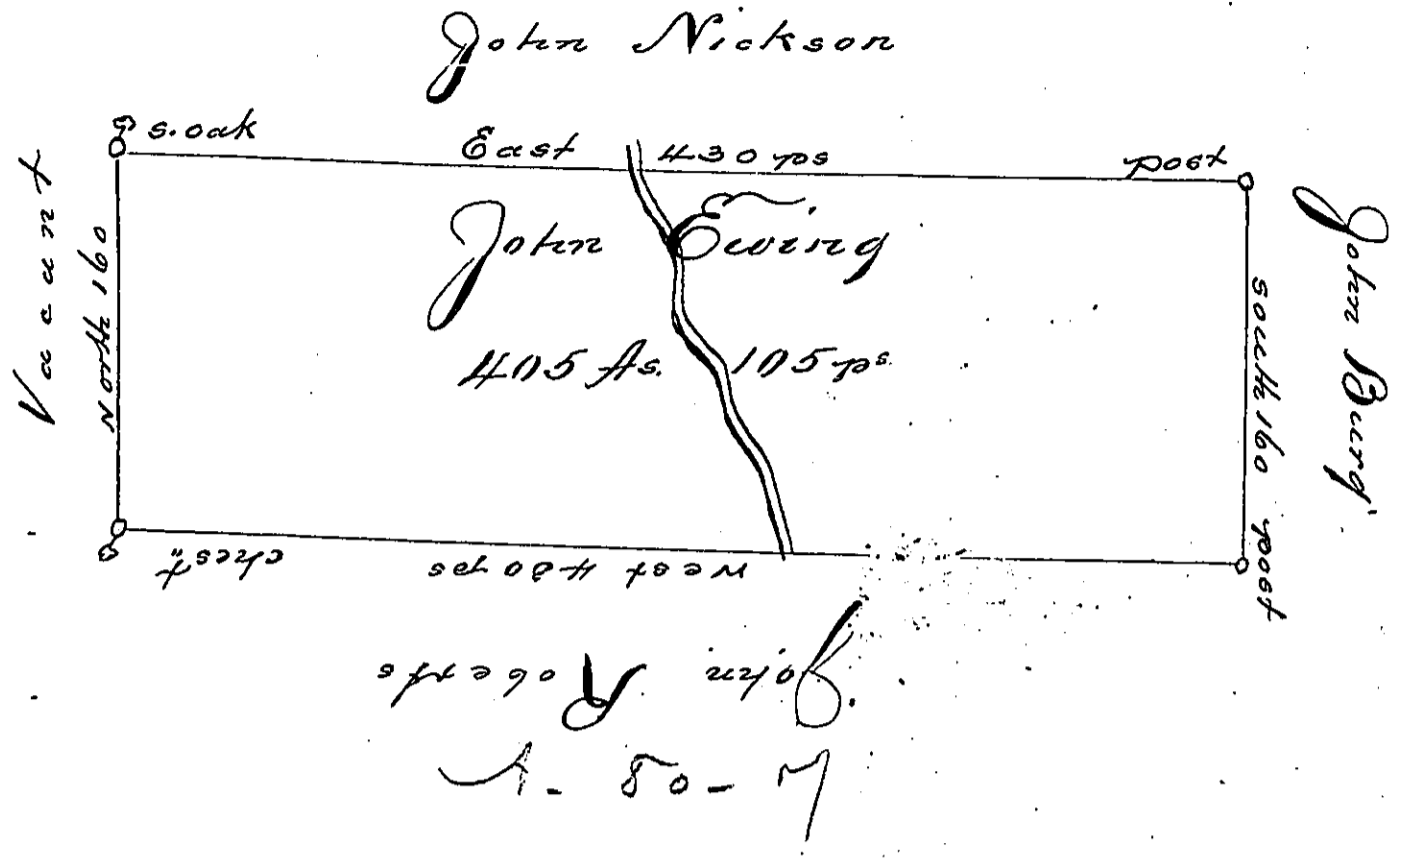 John Nickson
s. oak East 430 ps post
Vacant
North 160
John Ewing
405 As. 105 ps.
south 160 post
John Burg'
West 430 ps chest"
John Roberts
A - 80 - 7